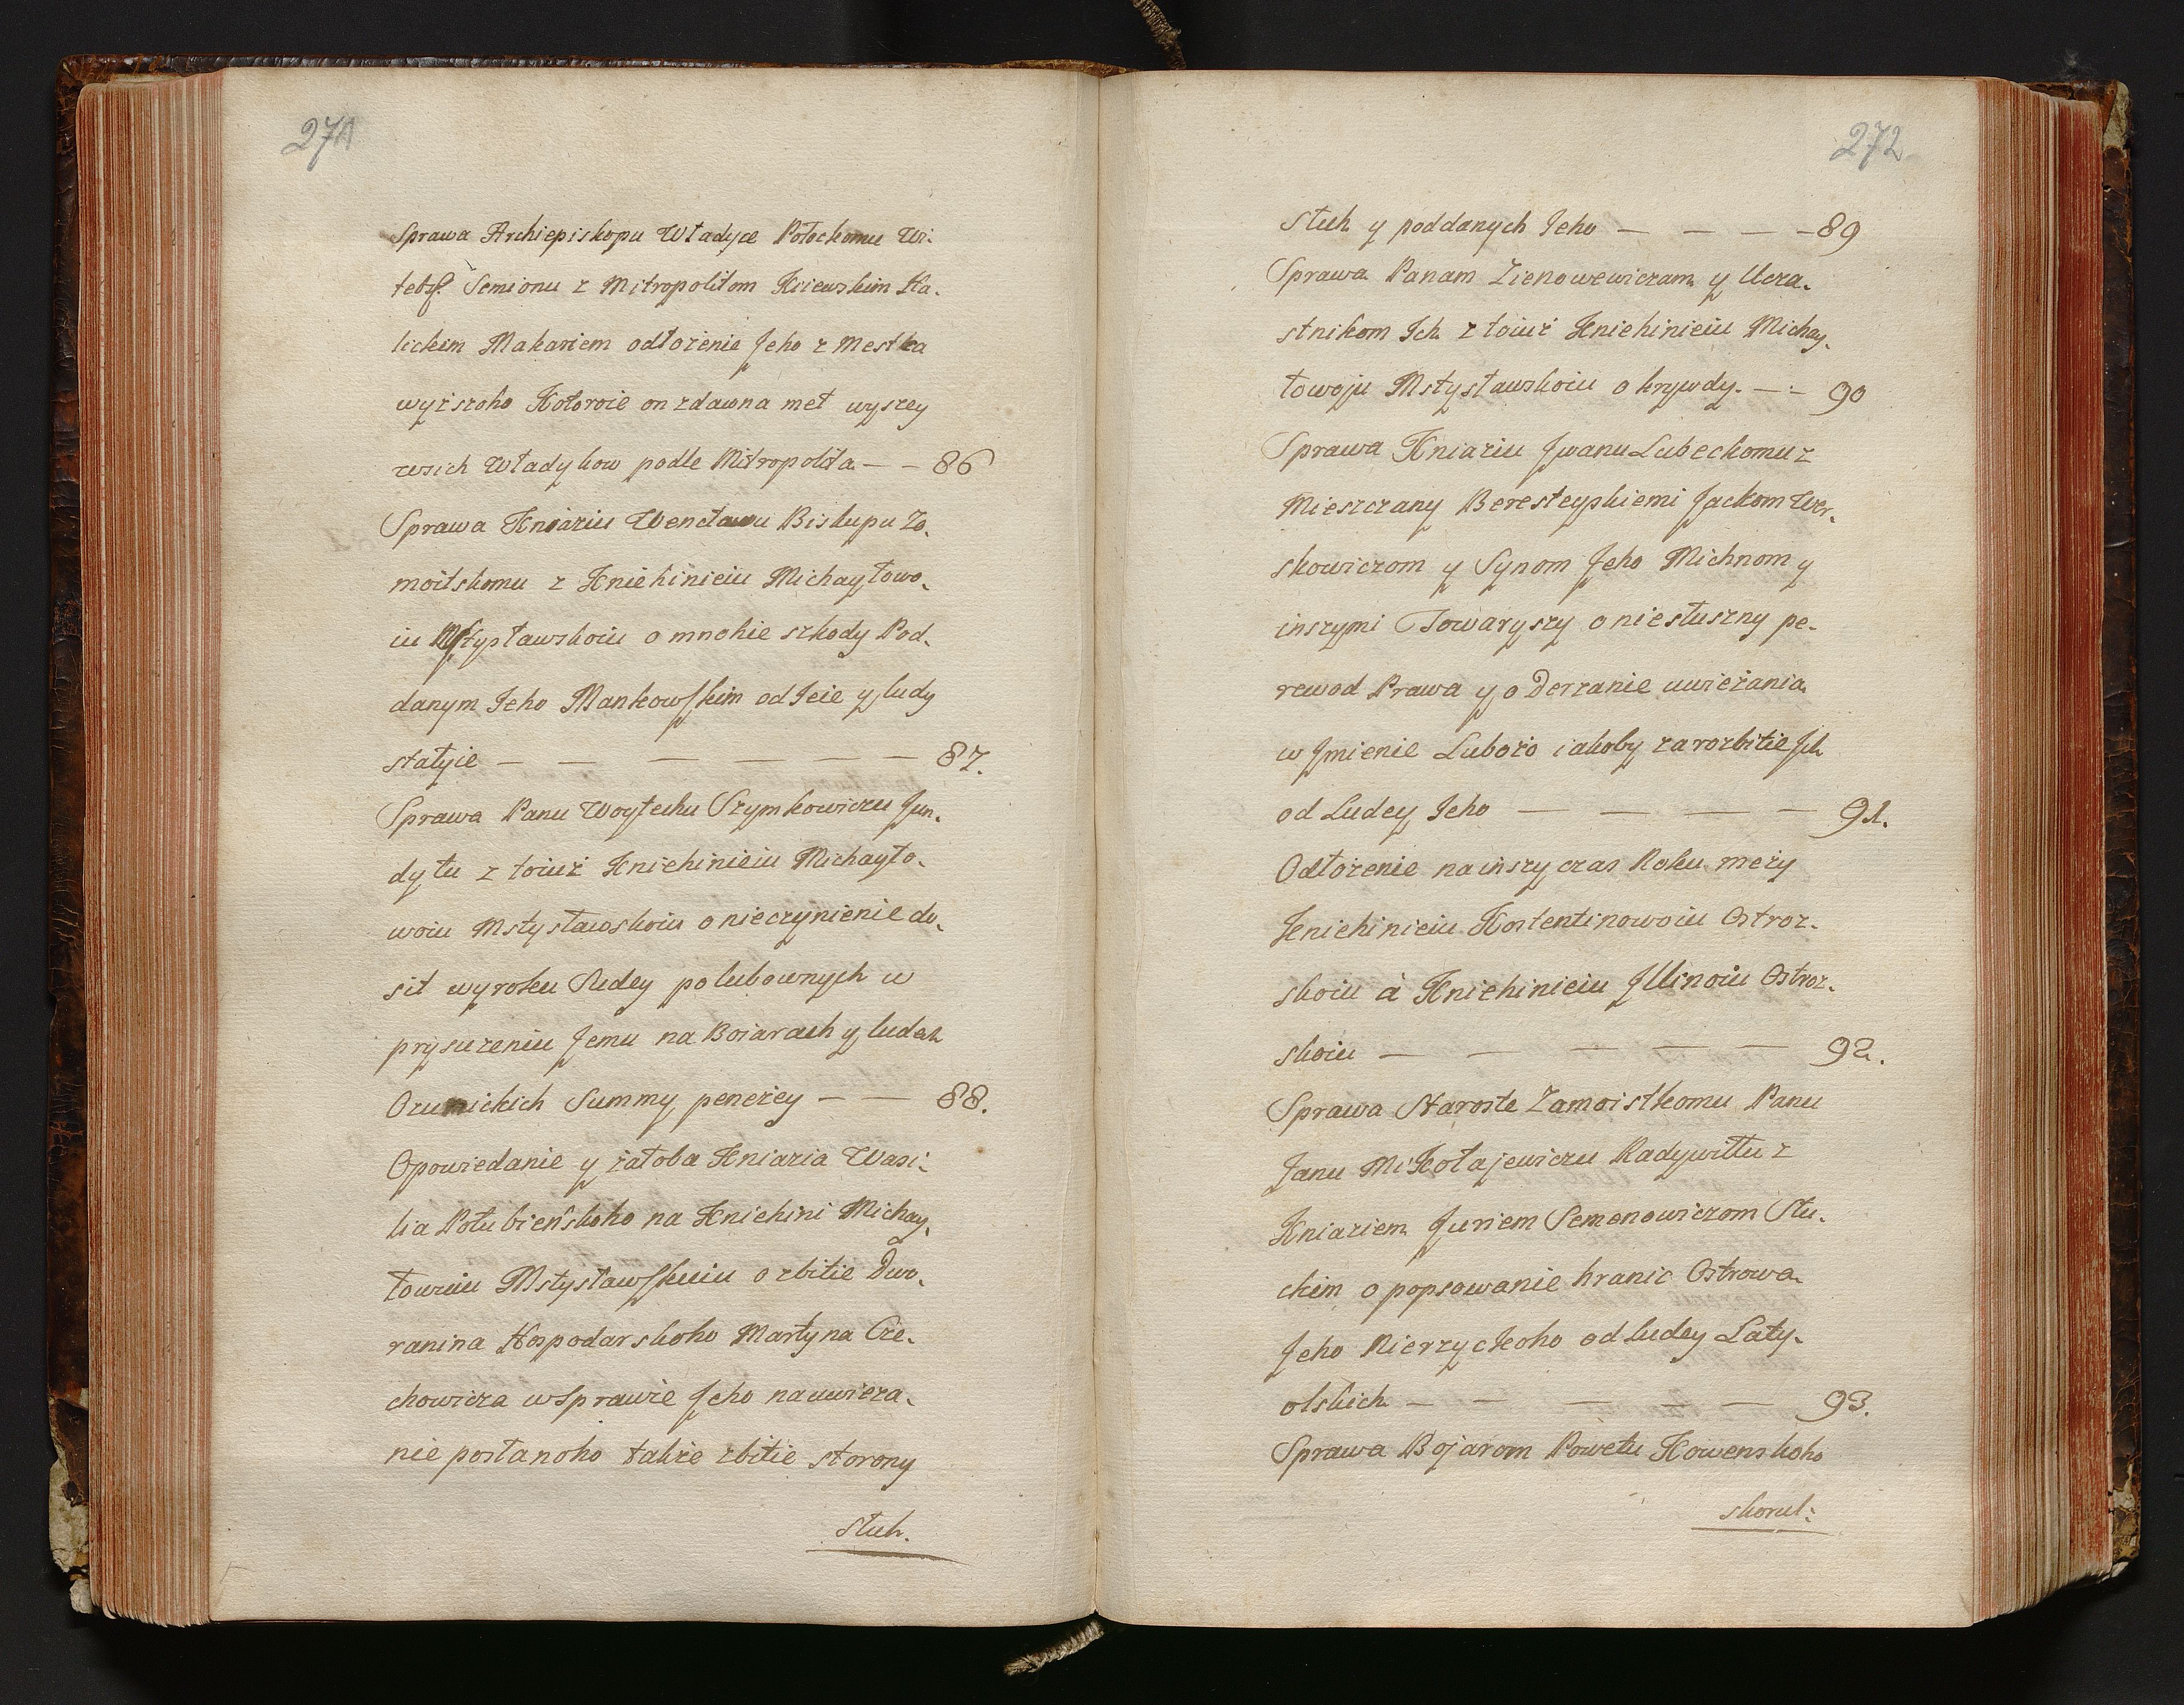 271
Sprawa Archiepiskopu Władyce Połockomu Wi-
tebsꝭ. Semionu z Mitropolitom Kiiewskim Ha-
lickim Makariem odłożenie Jeho z Mestca
wyższoho Kotoroie on zdawna meł wyszey
wsich Władykow podle Mitropolita — — 86
Sprawa Kniaziu Wencławu Biskupu Żo-
moitskomu z Kniehinieiu Michayłowo-
iu Mstysławskoiu o mnohie szkody Pod-
danym Jeho Mankowskim od Jeie y ludy
stałyie — — — — — — 87.
Sprawa Panu Woytechu Szymkowiczu Jun-
dyłu z toiuż Kniehinieiu Michayło-
woiu Mstysławskoiu o nieczynienie do-
sit wyroku Sudey polubownych w
prysuzeniu Jemu na Boiarach y ludech
Ozunickich Summy penezey — — 88.
Opowiedanie y żałoba Kniazia Wasi-
lia Połubieńskoho na Kniehini Michay-
łowuiu Mstysławskuiu o zbitie Dwo-
ranina Hospodarskoho Martyna Cze-
chowicza w Sprawie Jeho na uwieza-
nie posłanoho także zbitie storony
Słuh.
272
Słuh y poddanych Jeho — — — — 89
Sprawa Panam Zienowewiczam y Ucza-
stnikom Ich z toiuż Kniehinieiu Michay-
łowoju Mstysławskoiu o krywdy. — - 90
Sprawa Kniaziu Jwanu Lubeckomu z
Mieszczany Beresteyskiemi Jackom Wer-
skowiczom y Synom Jeho Michnom y
inszymi Towaryszy o niesłuszny pe-
rewod Prawa y o Derzanie uwieżania
w Jmienie Lubożo iakoby za rozbitie Jch
od Ludey Jeho — — — — 91.
Odłożenie na inszy czas Roku meży
Kniehinieiu Kostentinowoiu Ostroz-
skoiu à Kniehinieiu Jllinoiu Ostroz-
skoiu — — — — — 92.
Sprawa Staroste Zamoistkomu Panu
Janu Mikołajewiczu Radywiłłu z
Kniaziem Juriem Semenowiczom Słu-
ckim o popsowanie hranic Ostrowa
Jeho Nierzyckoho od ludey Laty-
olskich — — — — — 93.
Sprawa Bojarom Powetu Kowenskoho
skorul: